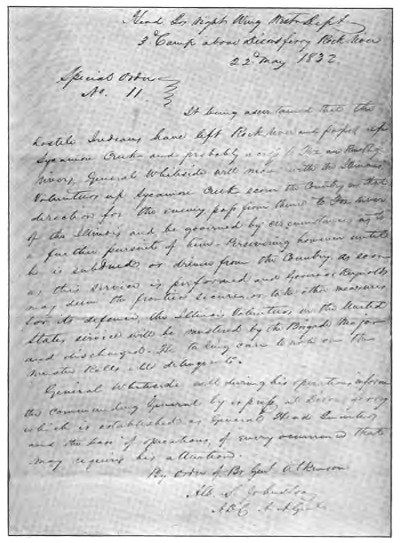 Head Qrs Right Wing West Dept
3d Camp above Dixons ferry Rock River
22d May 1832
Special Order
No. 11.
It being ascertained that the
hostile Indians have left Rock River and passed up
Sycamore Creek and probably
Rivers, General Whiteside will move with the Illinois
Volunteers up Sycamore Creek scour the Country in that
direction for the enemy, pass from thence to Fox River
of the Illinois and be governed by circumstances as to
a further pursuit of him. Persevering however until
he is subdued or driven from the Country. As soon
as this service is performed and Governor Reynolds
may deem the frontier secure, or take other measures
for its defence, the Illinois Volunteers in the United
States service will be mustered by the Brigade Major
and discharged. He taking care to note on the
Muster Rolls all delinquents.
General Whiteside will during his operations inform
the commanding General by express, at Dixons ferry
which is established as General Head Quarters
and the base of operations, of every occurrence that
may require his attention.
By Order of Br Genl Atkinson
A. S. Johnston
ADC A A Genl